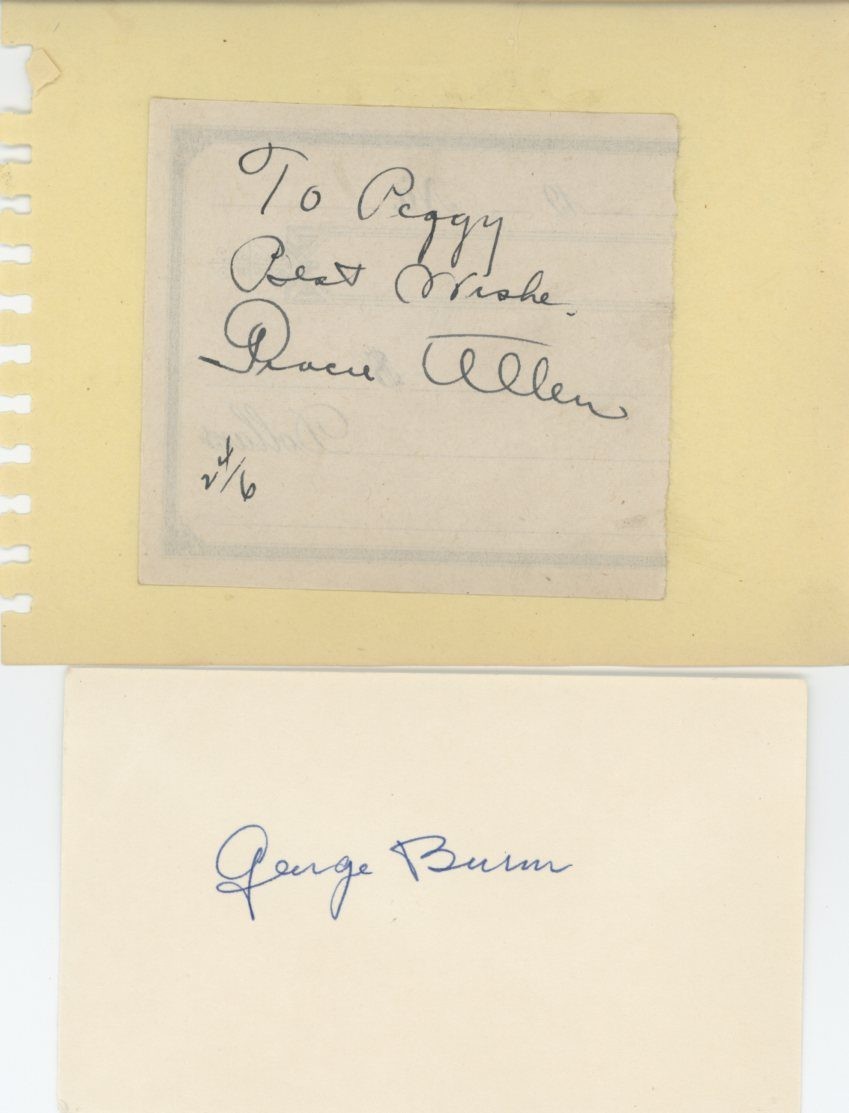 To Peggy
Best Wishe.
Gracie Allen
24/6
Dollars
George Burns